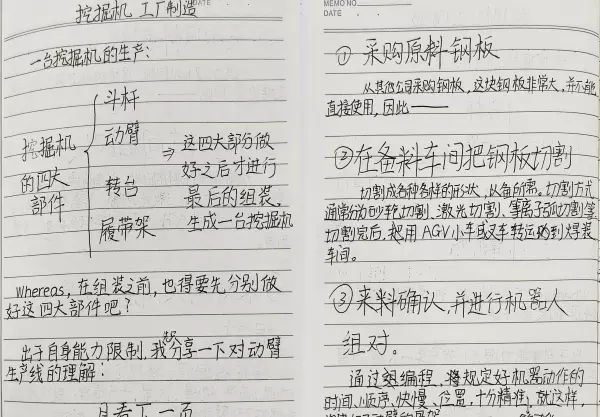 挖掘机 工厂制造
一台挖掘机的生产:
挖掘机
的四大
部件
斗杆
动臂
转台
履带架
⇒ 这四大部分做
好之后才进行
最后的组装,
生成一台挖掘机
whereas, 在组装之前, 也得要先分别做
好这四大部件吧?
出于自身能力限制, 我想分享一下对动臂
生产线的理解:
且看下一页
MEMO NO.
DATE
① 采购原料钢板
从其他公司采购钢板, 这块钢板非常大, 并不能
直接使用, 因此——
② 在备料车间把钢板切割
切割成各种各样的形状, 以备所需。切割方式
通常为砂轮切割、激光切割、等离子弧切割等
切割完后, 把用AGV小车或叉车转运到焊装
车间。
③ 来料确认, 并进行机器人
组对。
通过编程, 将规定好机器动作的
时间、顺序、快慢、位置, 十分精准, 就这样,